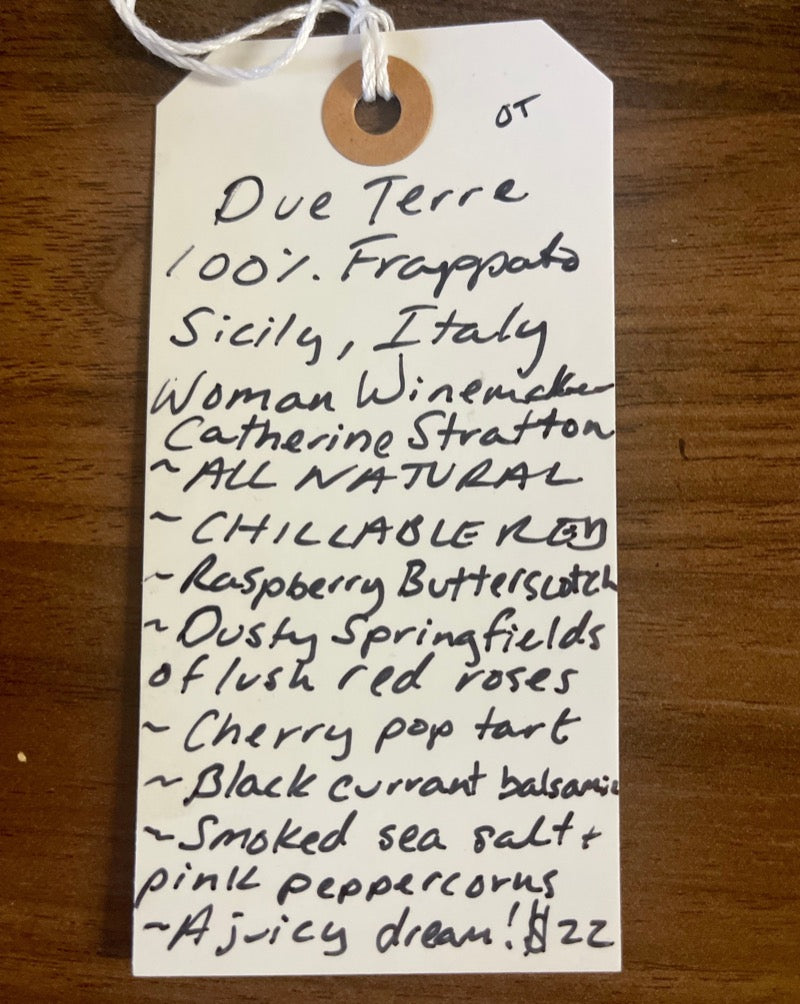 OT
Due Terre
100% Frappato
Sicily, Italy
Woman Winemaker
Catherine Stratton
~ALL NATURAL
~CHILLABLE RED
~Raspberry Butterscotch
~Dusty Springfields
of lush red roses
~Cherry pop tart
~Black currant balsamic
~Smoked sea salt +
pink peppercorns
~A juicy dream! $22